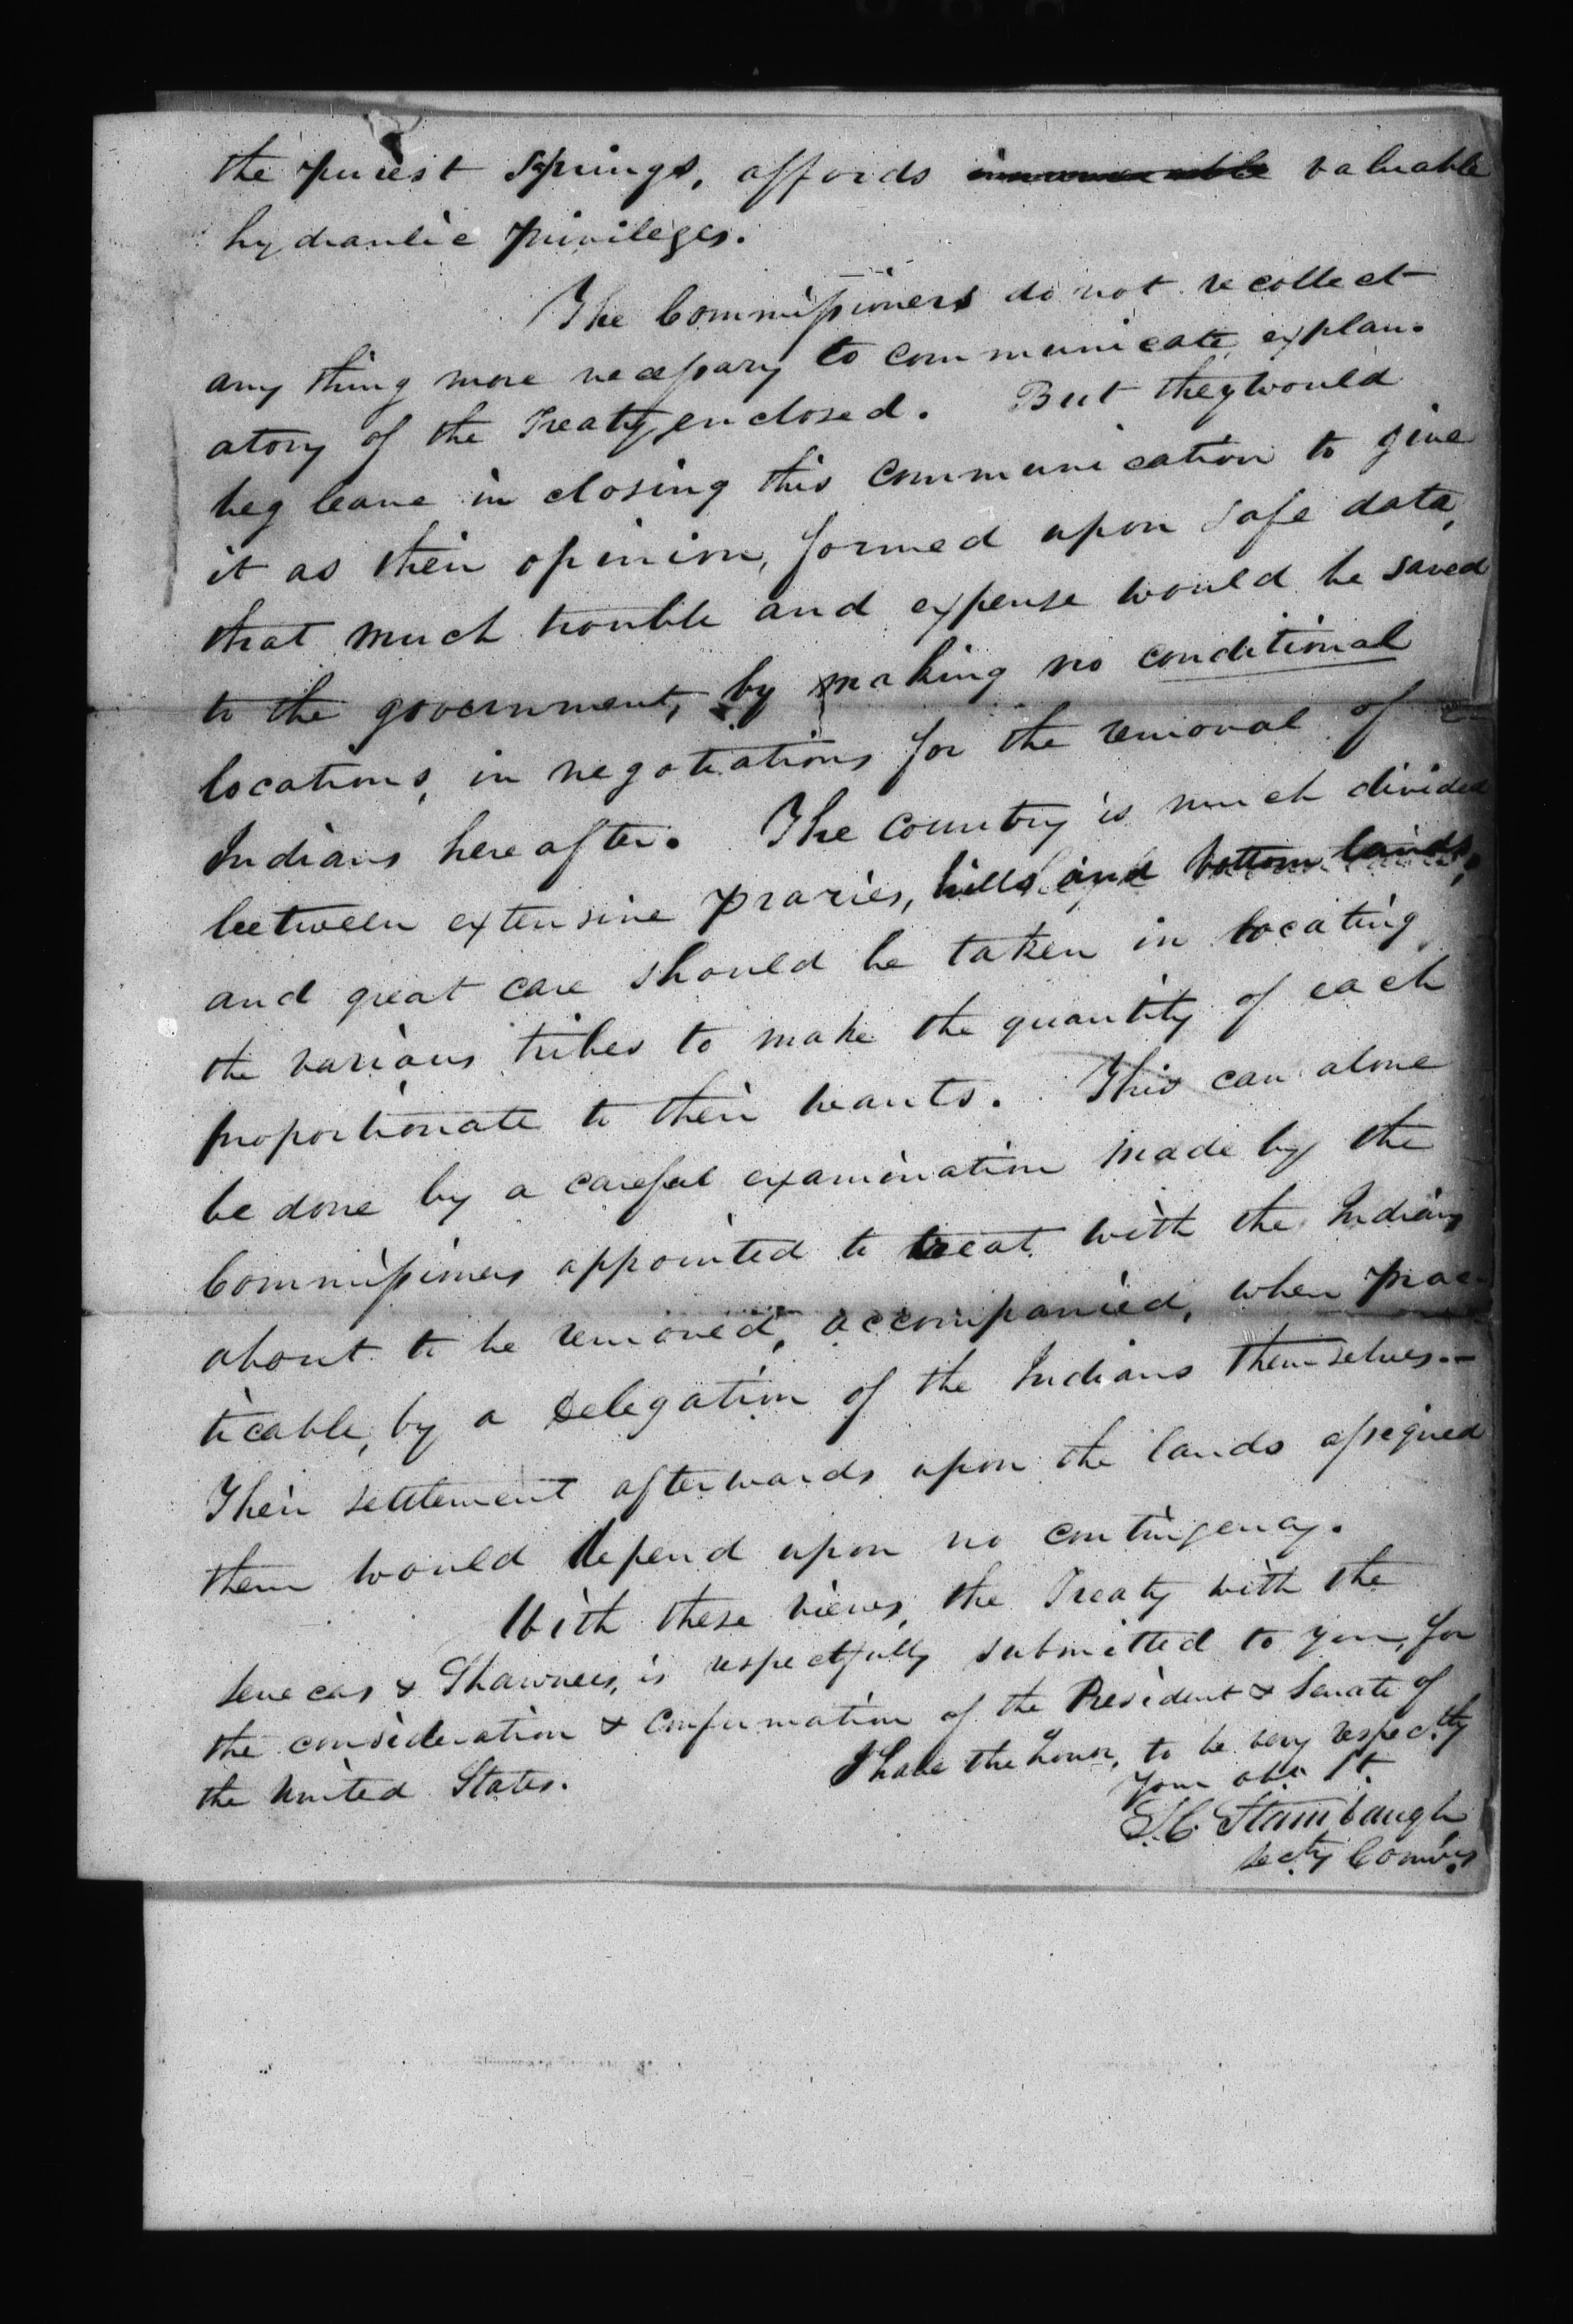 the purest springs, affords innumerable valuable
hydraulic privileges.
The Commissioners do not recollect
any thing more necessary to communicate explan-
atory of the Treaty enclosed. But they would
beg leave in closing this communication to give
it as their opinion, formed upon safe data,
that much trouble and expense would be saved
to the government, by making no conditional
locations, in negotiations for the removal of
Indians hereafter. The country is much divided
between extensive praries, hills and bottom lands,
and great care should be taken in locating
the various tribes to make the quantity of each
proportionate to their wants. This can alone
be done by a careful examination made by the
Commissioners appointed to treat with the Indians
about to be removed, accompanied, when prac-
ticable, by a delegation of the Indians themselves.-
Their settlement afterwards upon the lands assigned
them would depend upon no contingency.
With these views, the Treaty with the
Senecas & Shawnees, is respectfully submitted to you, for
the consideration & confirmation of the President & Senate of
the United States.
I have the honor, to be very respectly
Your obt St.
S. C. Stambaugh
Secty Comrs